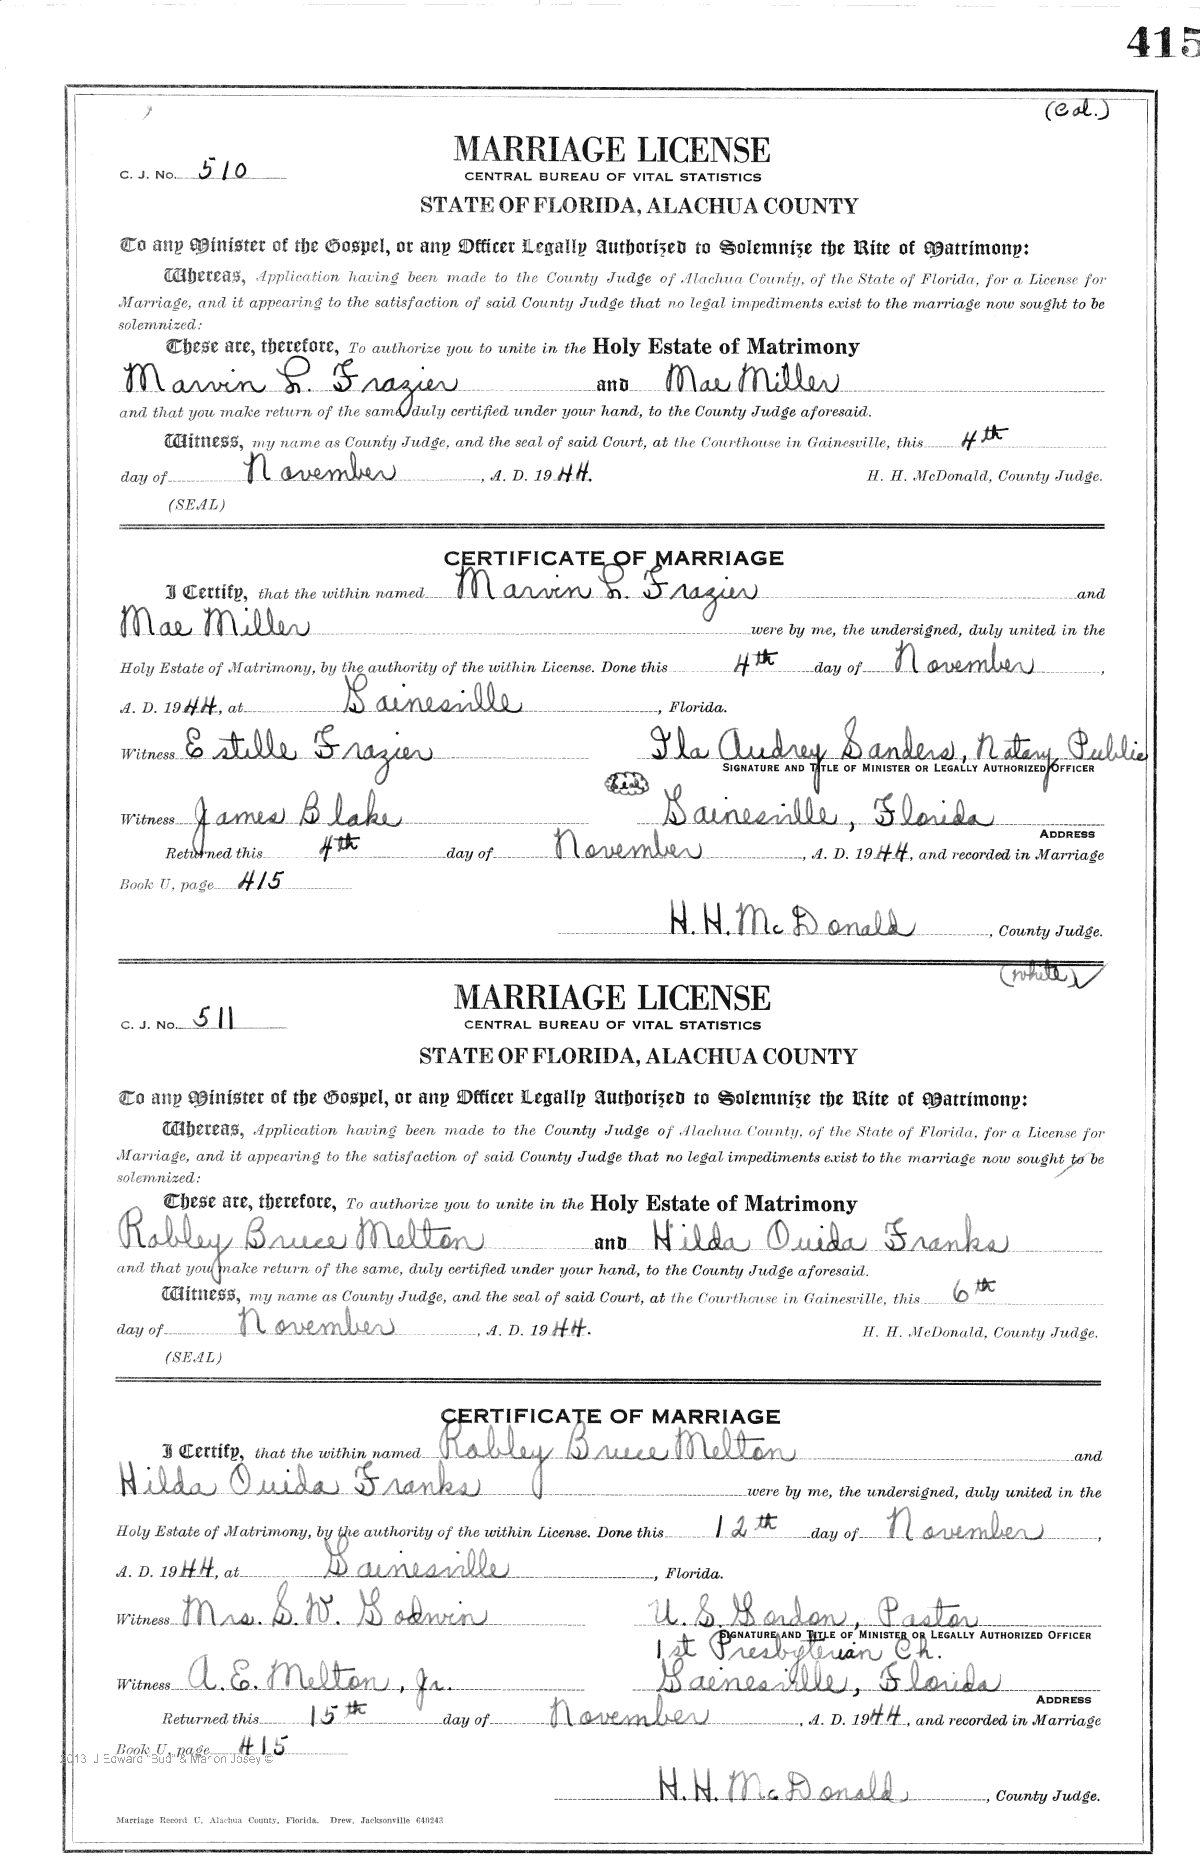 415
(Col.)
MARRIAGE LICENSE
C. J. No. 510
CENTRAL BUREAU OF VITAL STATISTICS
STATE OF FLORIDA, ALACHUA COUNTY
To any Minister of the Gospel, or any Officer Legally Authorized to Solemnize the Rite of Matrimony:
Whereas, Application having been made to the County Judge of Alachua County, of the State of Florida, for a License for
Marriage, and it appearing to the satisfaction of said County Judge that no legal impediments exist to the marriage now sought to be
solemnized:
These are, therefore, To authorize you to unite in the Holy Estate of Matrimony
Marvin L. Frazier and Mae Miller
and that you make return of the same, duly certified under your hand, to the County Judge aforesaid.
Witness, my name as County Judge, and the seal of said Court, at the Courthouse in Gainesville, this 4th
day of November, A. D. 1944. H. H. McDonald, County Judge.
(SEAL)
CERTIFICATE OF MARRIAGE
I Certify, that the within named Marvin L. Frazier and
Mae Miller were by me, the undersigned, duly united in the
Holy Estate of Matrimony, by the authority of the within License. Done this 4th day of November,
A. D. 1944, at Gainesville, Florida.
Witness Estille Frazier Ila Audrey Sanders, Notary Public
SIGNATURE AND TITLE OF MINISTER OR LEGALLY AUTHORIZED OFFICER
Seal
Witness James Blake Gainesville, Florida
ADDRESS
Returned this 4th day of November, A. D. 1944, and recorded in Marriage
Book U, page 415
H. H. McDonald, County Judge.
(white)
MARRIAGE LICENSE
C. J. No. 511
CENTRAL BUREAU OF VITAL STATISTICS
STATE OF FLORIDA, ALACHUA COUNTY
To any Minister of the Gospel, or any Officer Legally Authorized to Solemnize the Rite of Matrimony:
Whereas, Application having been made to the County Judge of Alachua County, of the State of Florida, for a License for
Marriage, and it appearing to the satisfaction of said County Judge that no legal impediments exist to the marriage now sought to be
solemnized:
These are, therefore, To authorize you to unite in the Holy Estate of Matrimony
Robley Bruce Melton and Hilda Ouida Franks
and that you make return of the same, duly certified under your hand, to the County Judge aforesaid.
Witness, my name as County Judge, and the seal of said Court, at the Courthouse in Gainesville, this 6th
day of November, A. D. 1944. H. H. McDonald, County Judge.
(SEAL)
CERTIFICATE OF MARRIAGE
I Certify, that the within named Robley Bruce Melton and
Hilda Ouida Franks were by me, the undersigned, duly united in the
Holy Estate of Matrimony, by the authority of the within License. Done this 12th day of November,
A. D. 1944, at Gainesville, Florida.
Witness Mrs. S. W. Godwin U. S. Gordon, Pastor
SIGNATURE AND TITLE OF MINISTER OR LEGALLY AUTHORIZED OFFICER
1st Presbyterian Ch.
Witness A. E. Melton, Jr. Gainesville, Florida
ADDRESS
Returned this 15th day of November, A. D. 1944, and recorded in Marriage
Book U, page 415
2013 J Edward "Bud" & Marion Josey ©
H. H. McDonald, County Judge.
Marriage Record U, Alachua County, Florida. Drew, Jacksonville 640243